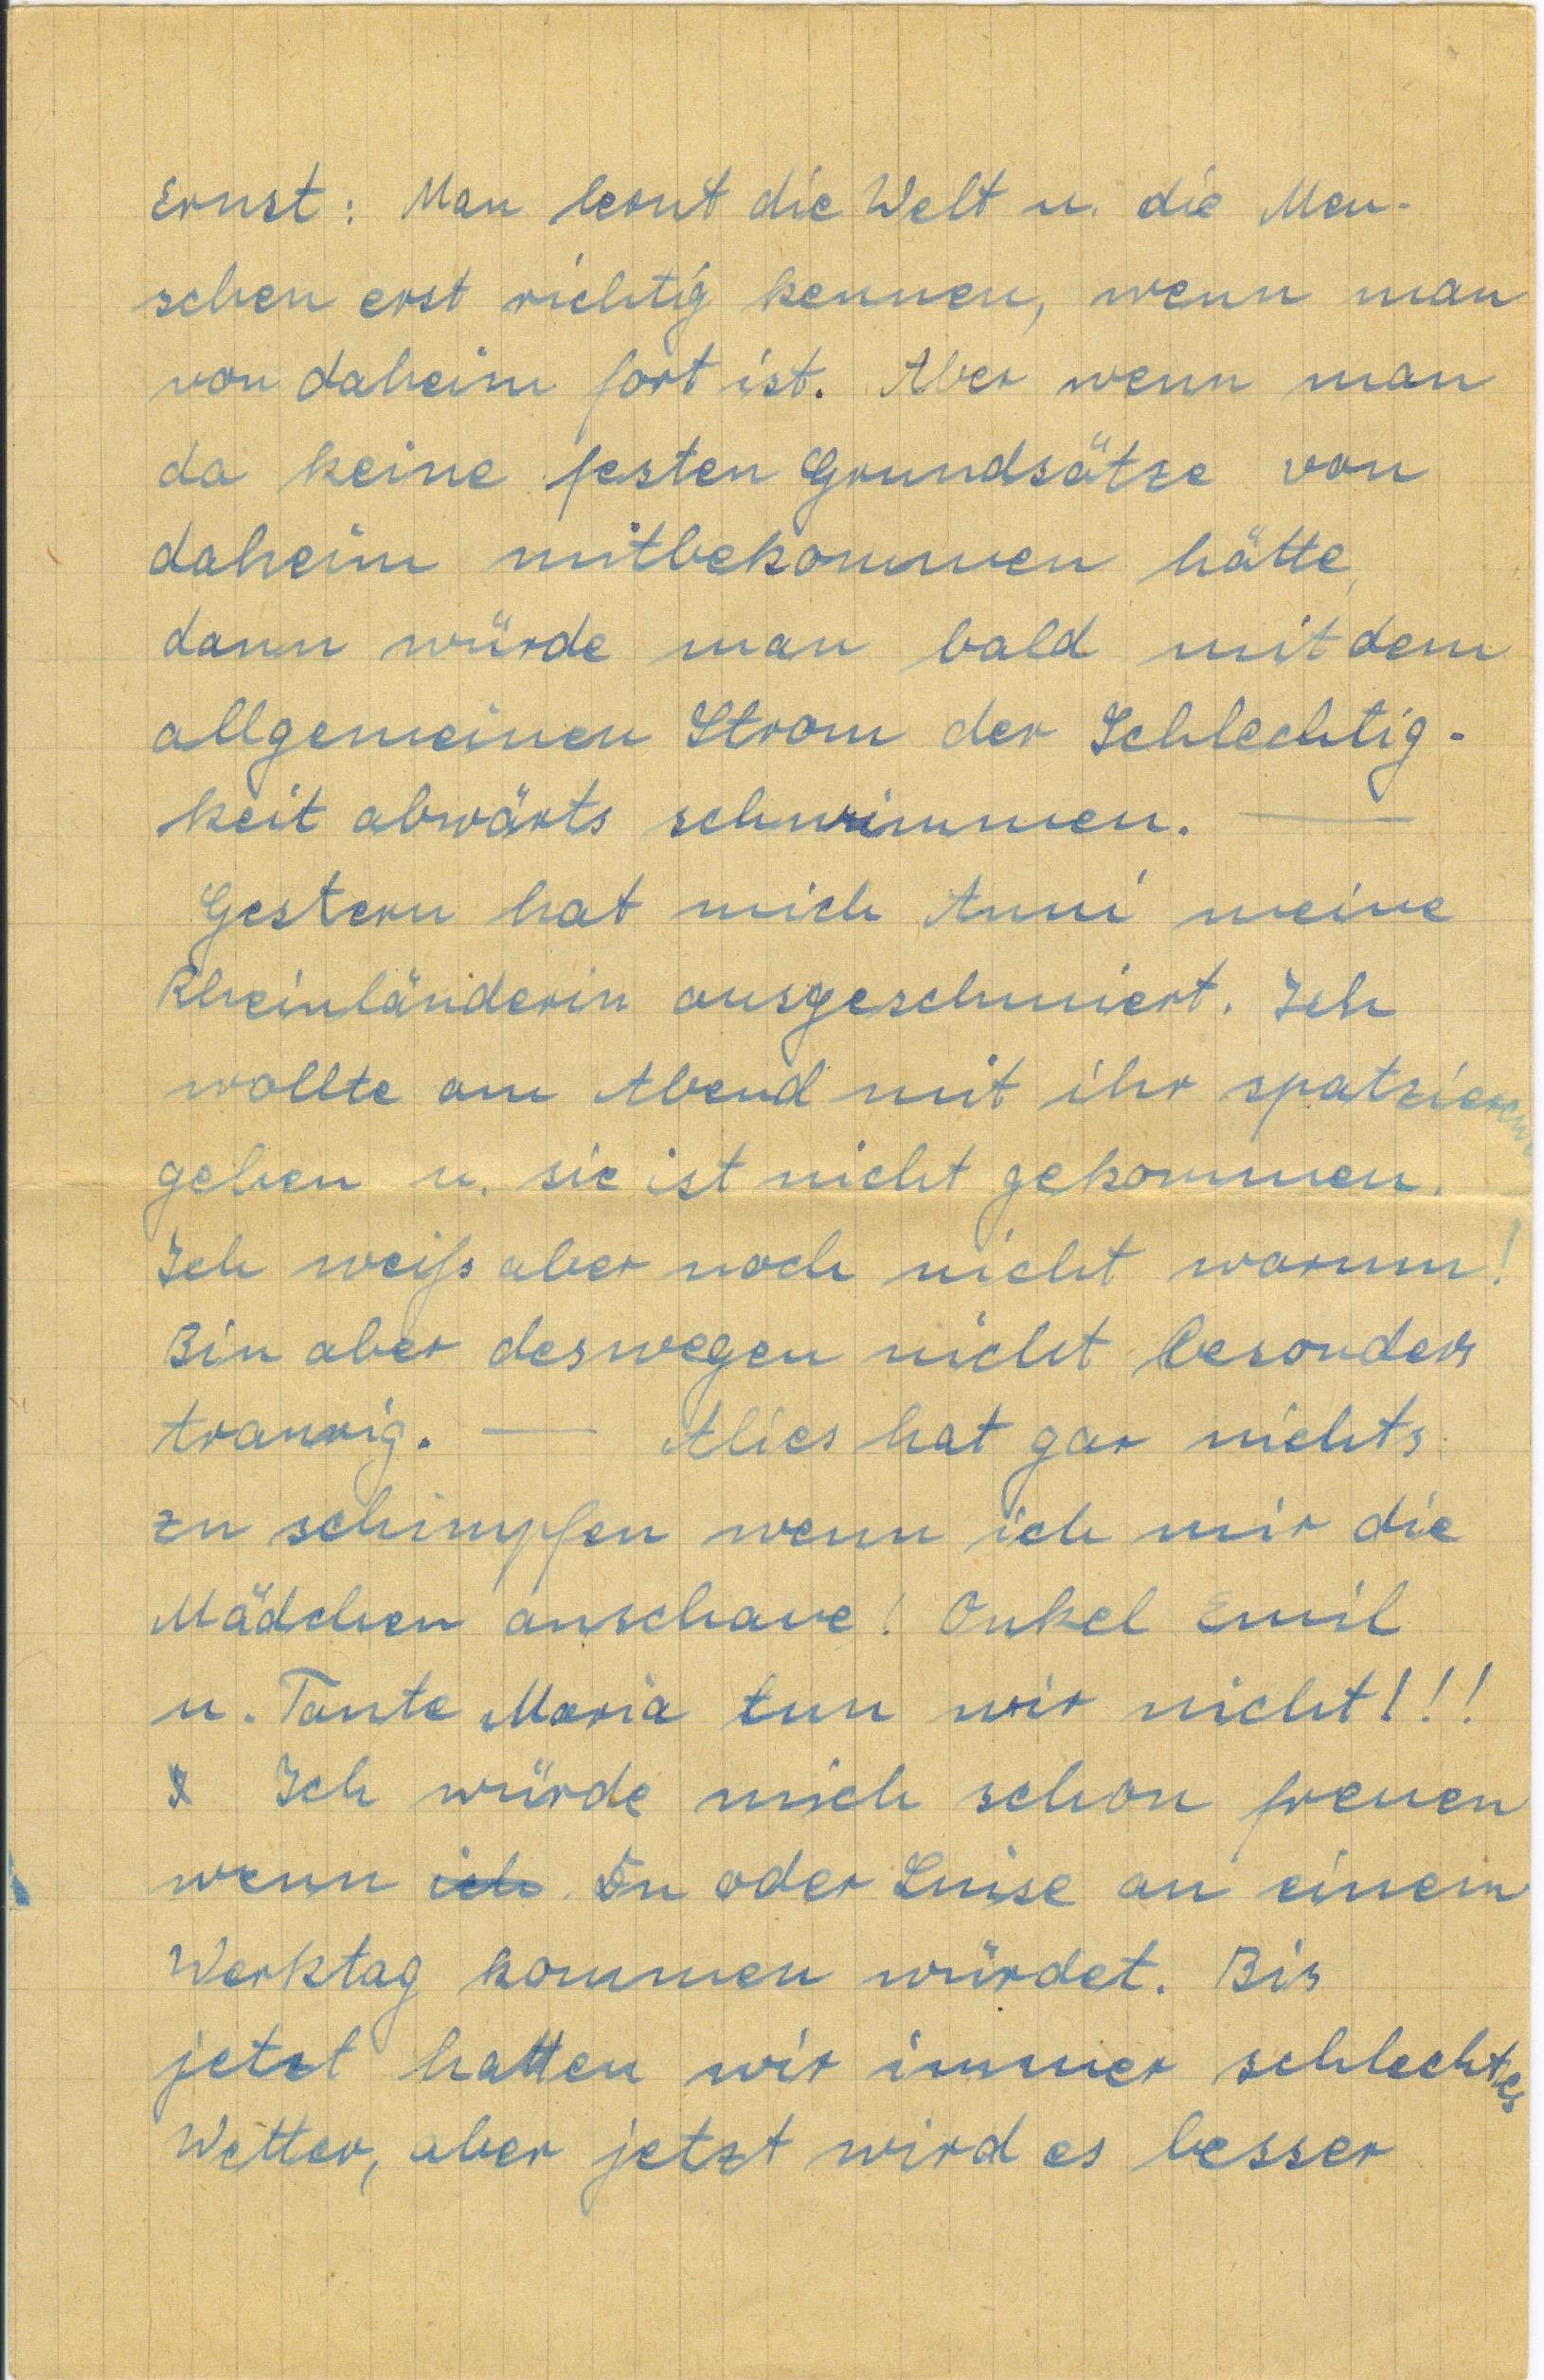 Ernst: Man lernt die Welt u. die Men-
schen erst richtig kennen, wenn man
von daheim fort ist. Aber wenn man
da keine festen Grundsätze von
daheim mitbekommen hätte,
dann würde man bald mit dem
allgemeinen Strom der Schlechtig-
keit abwärts schwimmen. —
Gestern hat mich Anni meine
Rheinländerin ausgeschmiert. Ich
wollte am Abend mit ihr spatzieren
gehen u. sie ist nicht gekommen.
Ich weiß aber noch nicht warum!
Bin aber deswegen nicht besonders
traurig. — Alies hat gar nichts
zu schimpfen wenn ich mir die
Mädchen anschaue! Onkel Emil
u. Tante Maria tun wir nicht!!!
Ich würde mich schon freuen
wenn ich Du oder Luise an einem
Werktag kommen würdet. Bis
jetzt hatten wir immer schlechtes
Wetter, aber jetzt wird es besser